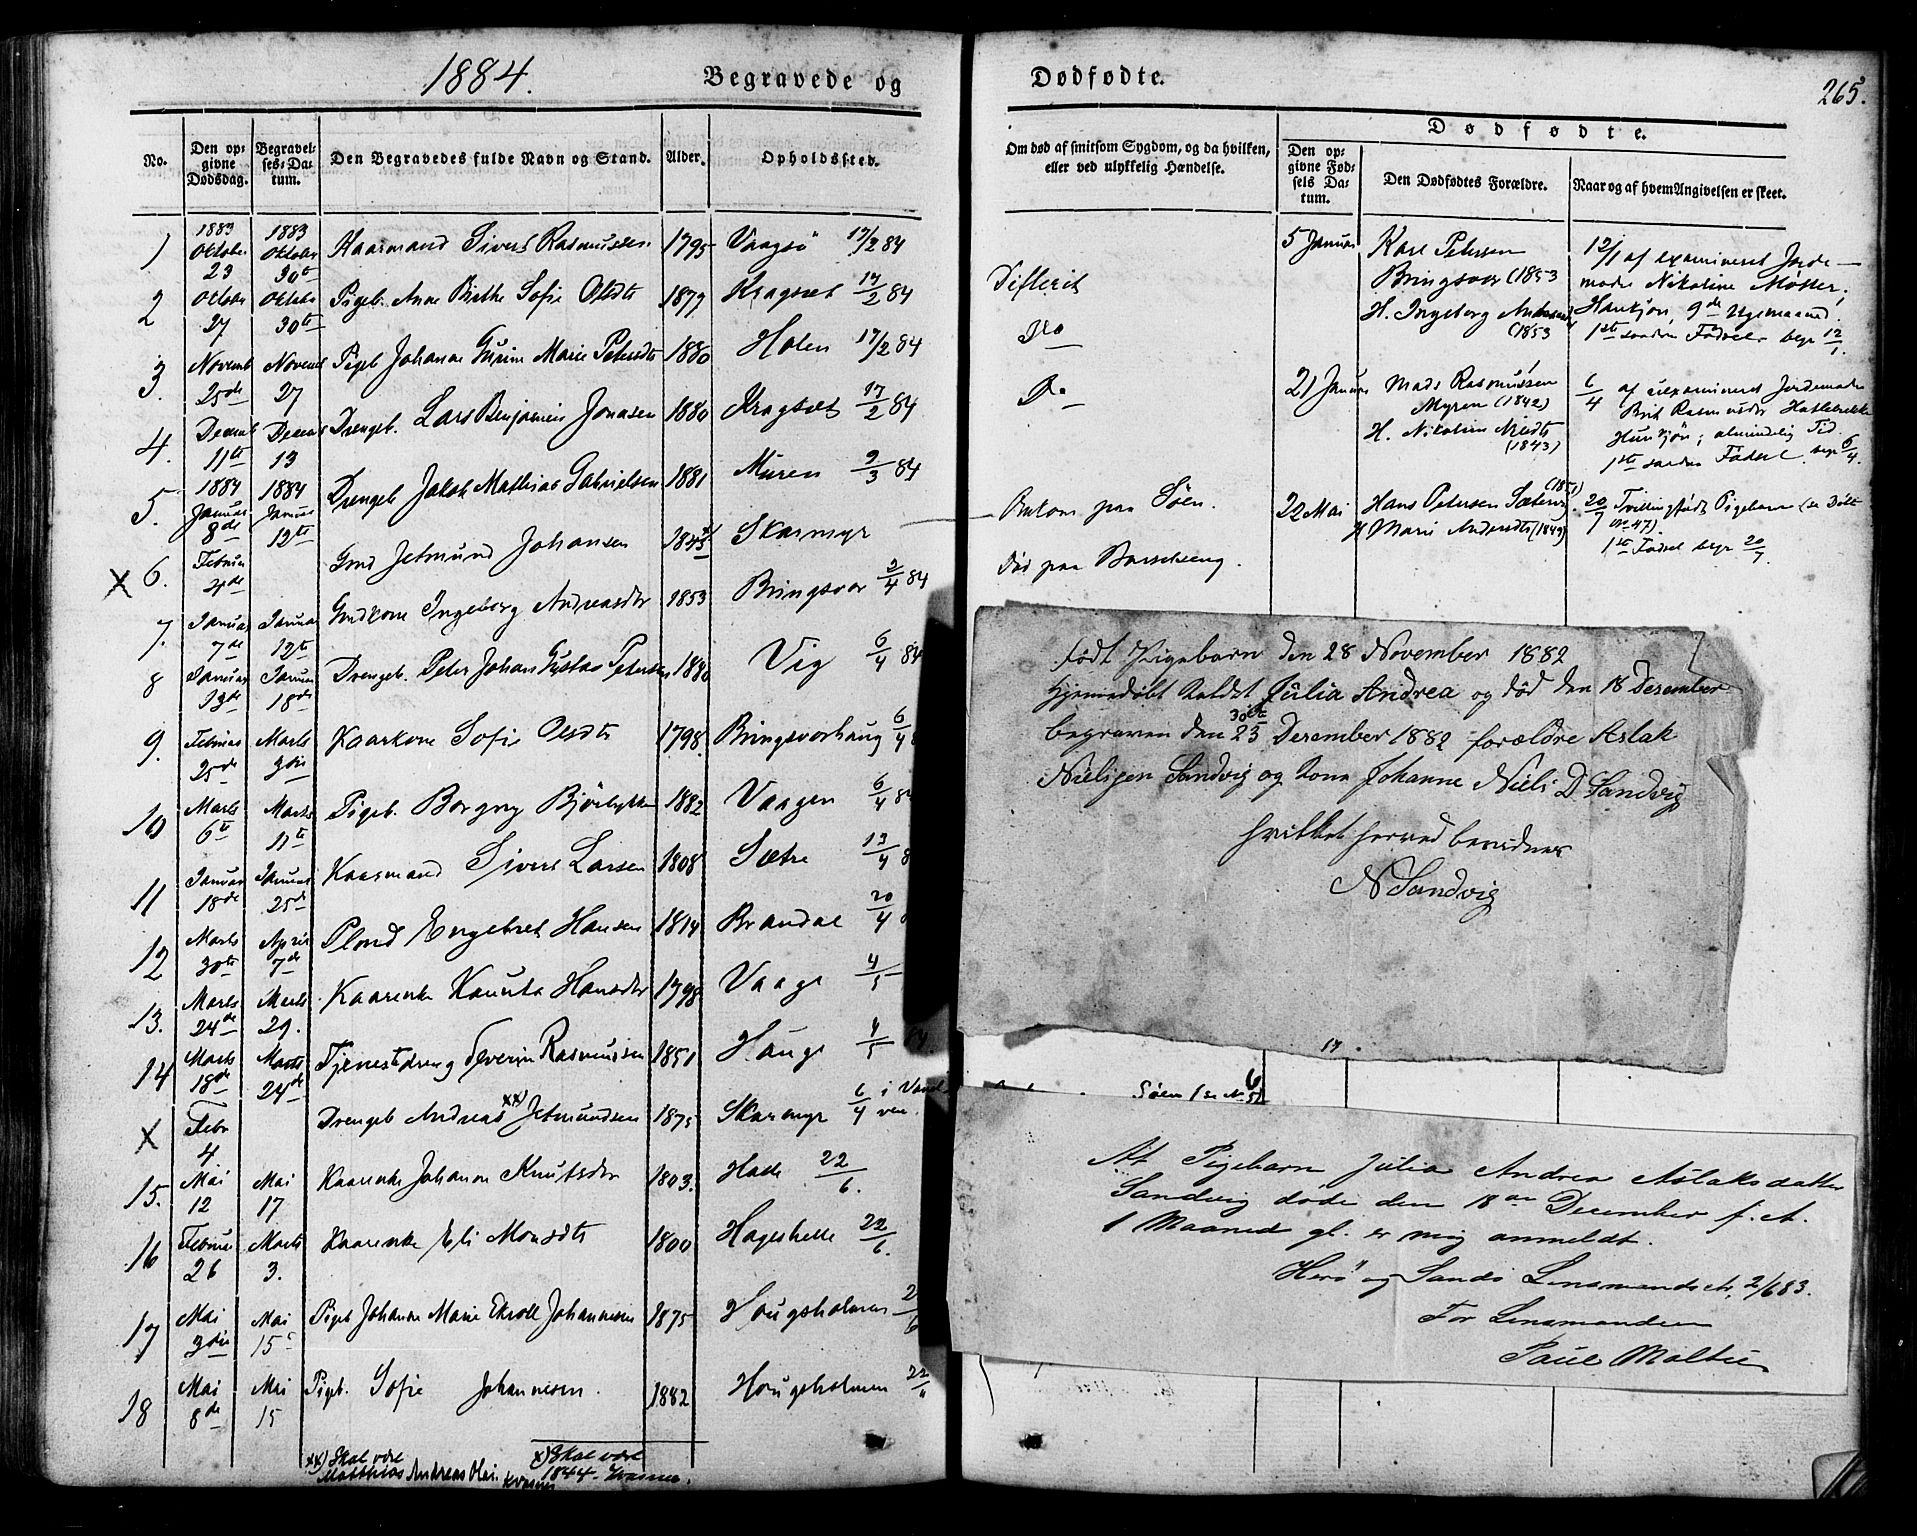 1884.
Begravede og
Dødfødte.
265.
Dødfødte.
No.
Den opgivne Dødsdag.
Begravelses-Datum.
Den Begravedes fulde Navn og Stand.
Alder.
Opholdssted.
Om død af smitsom Sygdom, og da hvilken, eller ved ulykkelig Hændelse.
Den opgivne Fødsels Datum.
Den Dødfødtes Forældre.
Naar og af hvem Angivelsen er skeet.
1 1883 Oktober 23 1883 Oktober 30te Kaarmand Sivert Rasmussen 1795 Vaagsö 17/2 84
2 Octobr 27 Oktobr 30te Pigeb. Anne Birthe Sofie Olsdtr 1879 Kragset 17/2 84 Difterit
3. Novemb 25de Novemb 27 Pigeb Johanne Gurine Marie Petersdtr 1880 Holen 17/2 84 Do
4. Decemb 11te Decemb 13 Drengeb. Lars Benjamin Jonasen 1880 Kragset 17/2 84 Do
5. 1884 Januar 8de 1884 Januar 12te Drengeb Jakob Mathias Gabrielsen 1881 Muren 9/3 84
X 6. Februar 4de Gmd Jetmund Johansen 1843 x) Skarmyr Omkom paa Søen.
7. Januar 7de Januar 12te Gmdkone Ingeborg Andreasdtr 1853 Bringsvor 2/4 84 Død paa Barselseng.
8 Januar 13de Januar 18de Drengeb. Peter Johan Gustav Petersen 1880 Vig 6/4 84
9. Februar 25de Marts 3die Kaarkone Sofie Olsdtr 1798 Bringsvorhaug 6/4 8
10 Marts 6te Marts 11te Pigeb. Borgny Bjørlykke 1882 Vaagen 6/4 8
11 Januar 18de Januar 25de Kaarmand Sivert Larsen 1808 Sætre 13/4 8
12 Marts 30te April 7de Plmd Engebret Hansen 1814 Brandal 20/4
13. Marts 24de Marts 29. Kaarenke Knuuta Hansdtr 1798 Vaage 4/5
14 Marts 18de Marts 24de Tjenestdreng Severin Rasmussen 1851 Hauge 4/5 84
X Febr 4 Drengeb Andreas xx) Jetmundsen 1875 Skarmyr 6/4 i Vand
Søen (se No 6
15. Mai 12 Mai 17 Kaarenke Johanne Knutsdtr 1803. Hatle 22/6.
16 Februar 26 Marts 3. Kaarenke Eli Monsdtr 1800 Hageshelle 22/6.
17 Mai 3die Mai 15 Pigeb Johanne Marie Ekroll Johannesen 1875 Hougsholmen 2/6
18 Mai 8de Mai 15 Pigeb. Sofie Johannesen. 1882 Hougsholmen 22/6
xx) Skal være
Matthias Andreas
x) Skal være
1844.
5 Januar Karl Petersen Bringsvor (1853 H. Ingeborg Andreasd (1853
12/1 af examineret Jordemoder Nikoline Møller; Hankjøn, 9de Ugemaaned. 1ste Fødsel begr 12/1.
21 Januar Mads Rasmussen Myren (1842) H. Nikoline Nilsdtr (1843)
6/4 af uexamineret Jordemoder Brit Rasmusdtr Hatlebrekke Hunkjøn; almindelig Tid. 1ste Fødsel. begr 6/4.
22 Mai Hans Petersen Sætre (1851) H Marie Andersdtr (1849)
20/7 Tvillingfødt Pigebarn (se Døbte no 47) 1ste Fødsel begr 20/7.
født Pigebarn den 28 November 1882
hjemmedøbt kaldet Julia Andrea og død den 18 Desember
begraven den 23 30te Desember 1882 forældre Aslak
Nielsen Sandvig og kone Johanne Niels D. Sandvig
hvilket herved bevidnes
N Sandvig
At Pigebarn Julia Andrea Aslaksdatter
Sandvig døde den 18de December f. A.
1 Maaned gl. er mig anmeldt.
Herø og Sandø Lensmandsct. 2/6 83.
For Lensmanden
Paul Moltu